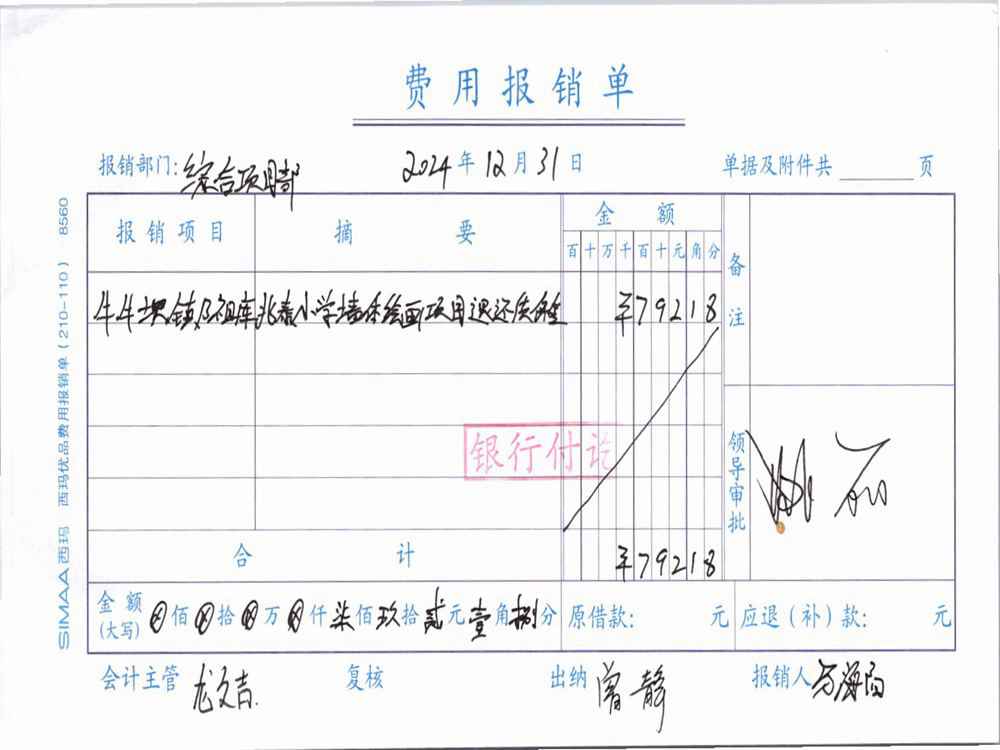 费用报销单
报销部门: 综合项目部 2024 年 12 月 31 日 单据及附件共 页
报销项目 摘要 金额 备注
百 十 万 千 百 十 元 角 分
牛牛坝镇 兆泰小学墙体绘画项目退还质保金 ¥79218
银行付讫
领导审批
合计 ¥79218
金额(大写) ⊗佰⊗拾⊗万⊗仟柒佰玖拾贰元壹角捌分 原借款: 元 应退(补)款: 元
会计主管 龙文吉 复核 出纳 曾静 报销人
SIMAA西玛 西玛优品费用报销单(210-110) 8560